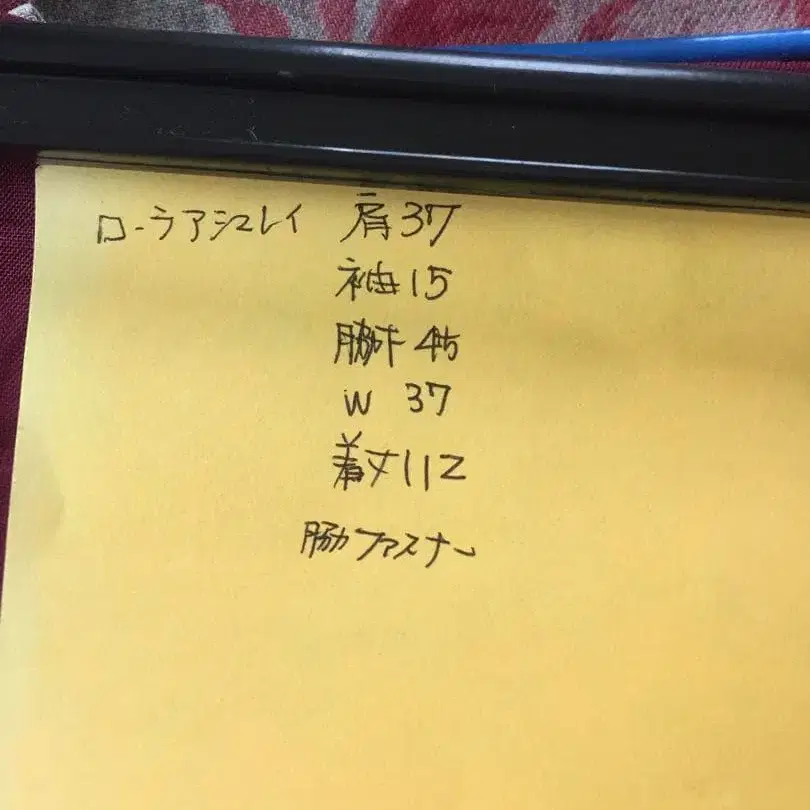 ローラアシュレイ 肩37
袖15
脇下45
W 37
着丈112
脇ファスナー